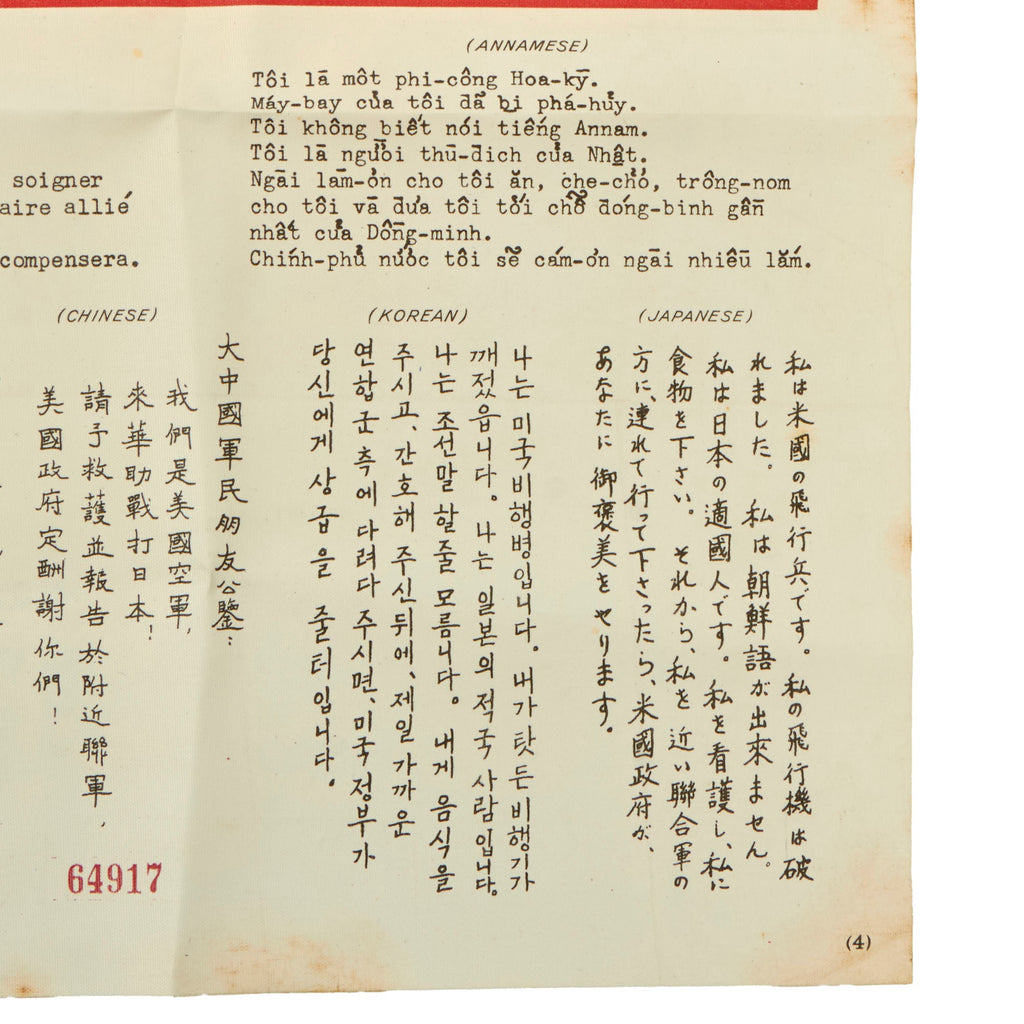 (ANNAMESE)
Tôi lā môt phi-công Hoa-kȳ.
Máy-bay của tôi đã bị phá-hủy.
Tôi không biết nói tiếng Annam.
Tôi lā người thū-đich của Nhật.
Ngāi lām-ơn cho tôi ăn, che-chở, trông-nom
cho tôi vā đưa tôi tới chỗ đóng-binh gần
nhất của Dồng-minh.
Chính-phủ nước tôi sẽ cám-ơn ngāi nhiều lắm.
soigner
aire allié
compensera.
(CHINESE)
大中國軍民朋友公鑒:
我們是美國空軍,
來華助戰打日本!
請予救護並報告於附近聯軍,
美國政府定酬謝你們!
(KOREAN)
나는 미국비행병입니다. 내가 탓든비행기가
깨젔읍니다. 나는 일본의적국사람입니다.
나는 조선말 할줄 모름니다. 내게 음식을
주시고, 간호해 주신뒤에, 제일 가까운
연합군측에 다려다 주시면, 미국정부가
당신에게상급을 줄터입니다.
(JAPANESE)
私は米國の飛行兵です。私の飛行機は破
れました。私は朝鮮語が出來ません。
私は日本の適國人です。私を看護し、私に
食物を下さい。それから、私を近い聯合軍の
方に、連れて行って下さったら、米國政府が、
あなたに御褒美をやります。
64917
(4)